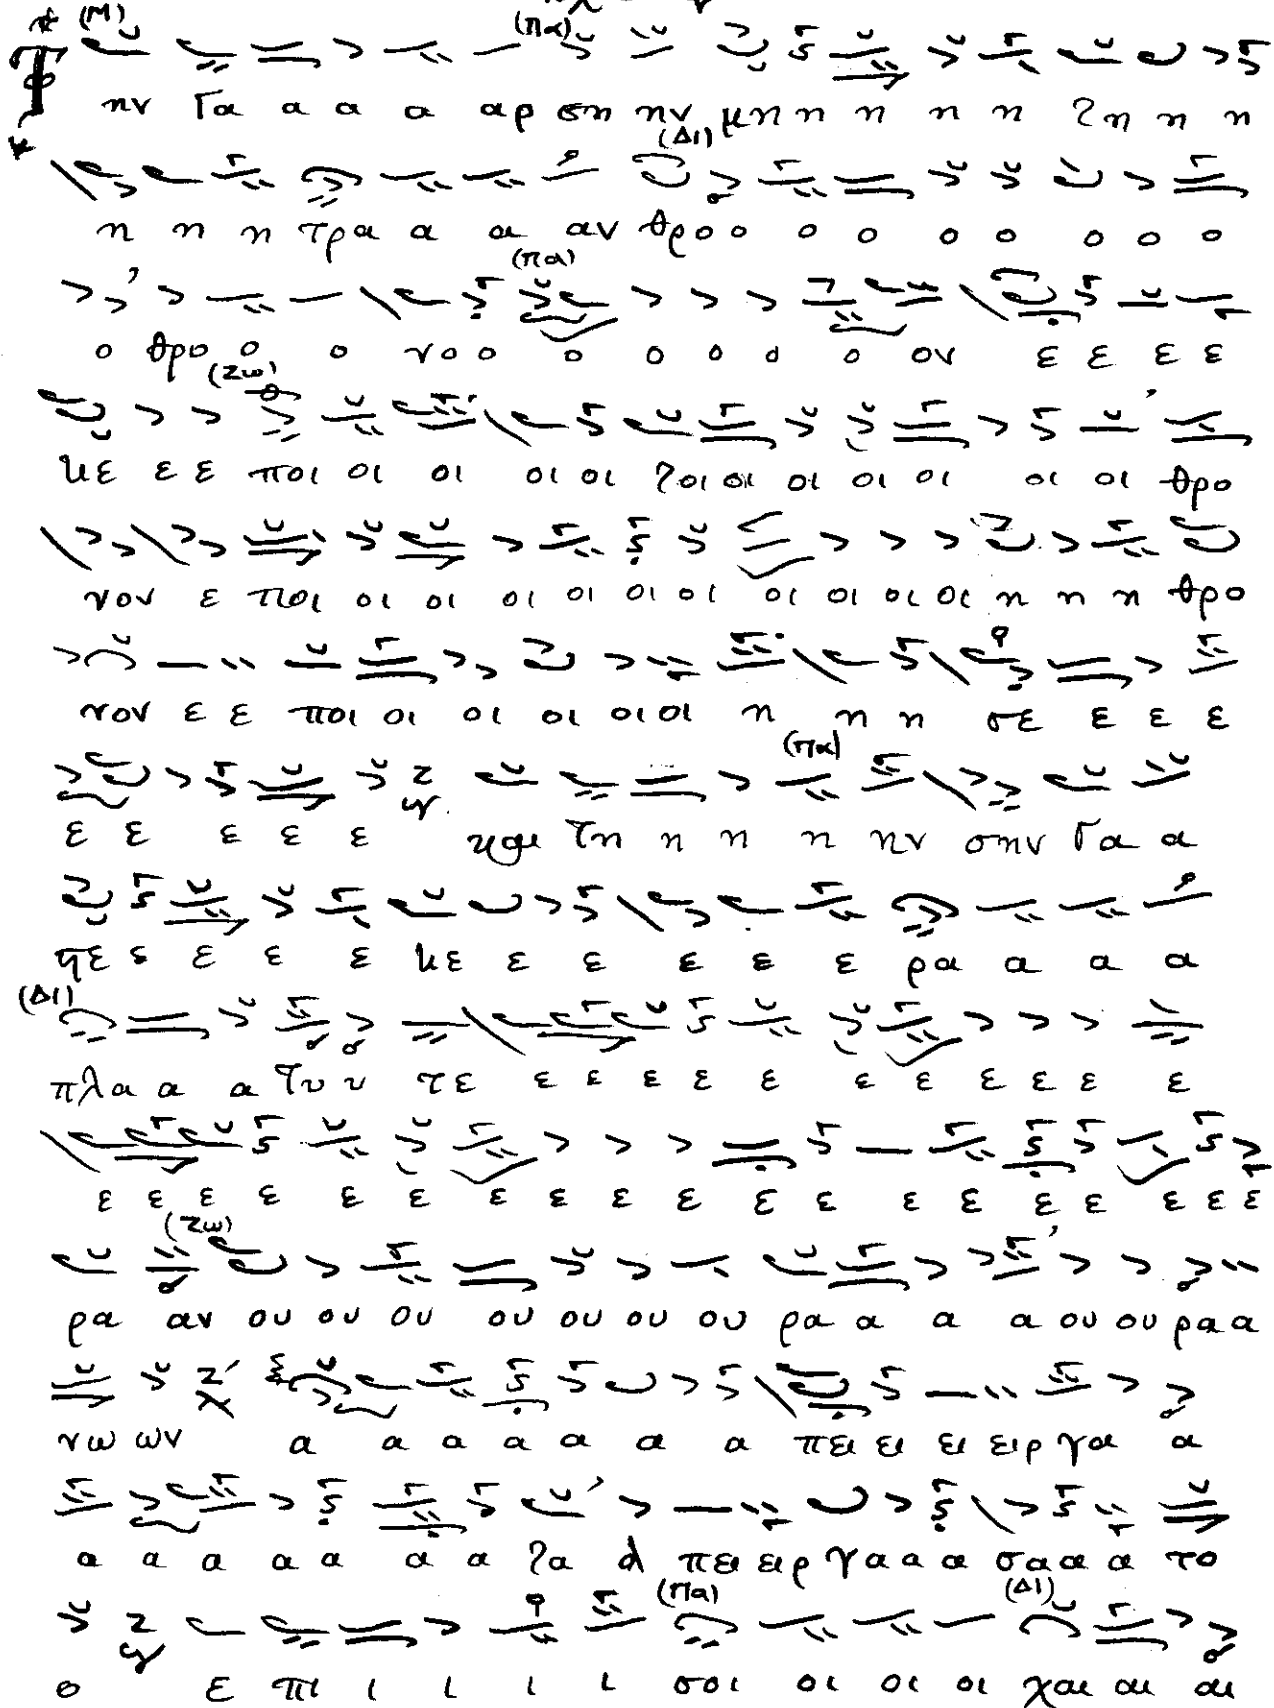 (Μ) (πα)
Τ ην Γα α α α αρ ση ην μη η η η η ζη η η
(Δι)
η η η τρα α α αν θρο ο ο ο ο ο ο ο ο
(πα)
ο θρο ο ο νο ο ο ο ο ο ο ον ε ε ε ε
(Ζω)
κε ε ε ποι οι οι οι οι ζοι οι οι οι οι οι οι θρο
νον ε ποι οι οι οι οι οι οι οι οι οι οι η η η θρο
νον ε ε ποι οι οι οι οι οι η η η σε ε ε ε
(Πα)
ε ε ε ε ε και Τη η η η ην σην Γα α
ςε ε ε ε ε κε ε ε ε ε ε ρα α α α
(Δι)
πλα α α Τυ υ τε ε ε ε ε ε ε ε ε ε ε ε
ε ε ε ε ε ε ε ε ε ε ε ε ε ε ε ε ε ε ε
(Ζω)
ρα αν ου ου ου ου ου ου ου ρα α α α ου ου ρα α
νω ων α α α α α α α πει ει ει ειρ γα α
α α α α α α α ζα α πει ειρ γα α α σα α α το
(Πα) (Δι)
ο ε πι ι ι ι ι σοι οι οι οι χαι αι αι